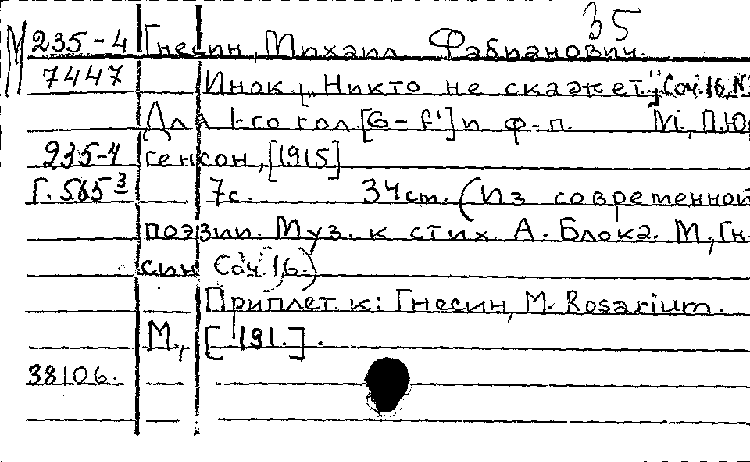 35
М 235-4 Гнесин, Михаил Фабианович.
7447 Инок („Никто не скажет;" Соч. 16, №
Для 1-го гол. [G-f¹] и ф-п. М., П. Юр
235-4 генсон, [1915]
Г. 565³ 7с. 34 ст. (Из современной
поэзии. Муз. к стих. А. Блока. М. Гне
син Соч. 16.)
Приплет. к: Гнесин, М. Rosarium.
М., [191.].
38106.